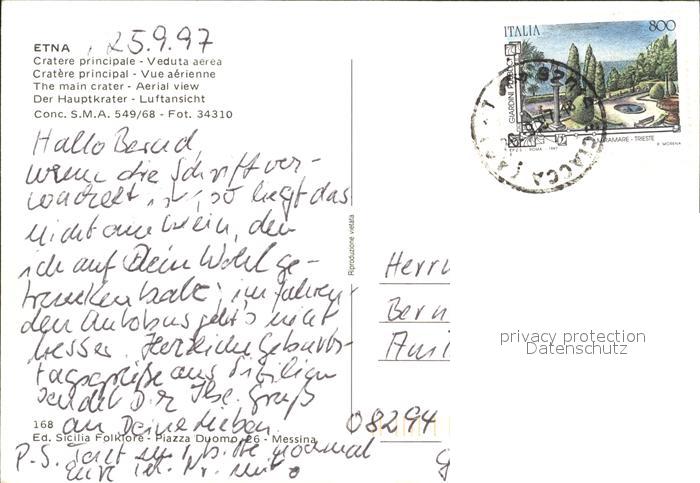 ETNA , 25.9.97
Cratere principale - Veduta aerea
Cratère principal - Vue aérienne
The main crater - Aerial view
Der Hauptkrater - Luftansicht
Conc. S.M.A. 549/68 - Fot. 34310
Hallo Bernd,
wenn die Schrift ver-
wackelt ist, so liegt das
nicht am Wein, den
ich auf Dein Wohl ge-
trunken habe; im fahren-
den Autobus geht's nicht
besser. Herzliche Geburts-
tagsgrüße aus Sizilien
sendet Dir Ilse. Gruß
an Deine Lieben.
168
Ed. Sicilia Folklore - Piazza Duomo, 26 - Messina
P.S. bitte nochmal
Nr.
Riproduzione vietata
ITALIA 800
GIARDINI PUBBLICI
MIRAMARE - TRIESTE
I.P.Z.S. - ROMA - 1997 R. MORENA
SCIACCA
Herrn
Bern
08294
privacy protection
Datenschutz